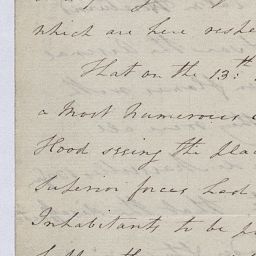 which are here respe
That on the 13.th
a most numerous
Hood seeing the pla
Superior forces had
Inhabitants to be p